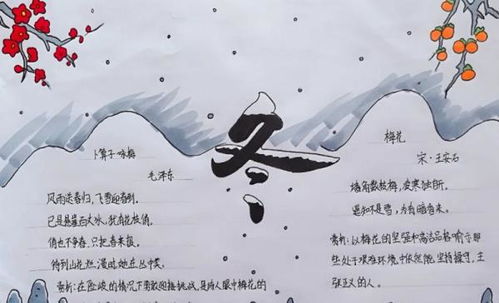 冬
卜算子·咏梅
毛泽东
风雨送春归，飞雪迎春到。
已是悬崖百丈冰，犹有花枝俏。
俏也不争春，只把春来报。
待到山花烂漫时，她在丛中笑。
赏析：在险峻的情况下勇敢迎接挑战，是诗人眼中梅花的
梅花
宋·王安石
墙角数枝梅，凌寒独自开。
遥知不是雪，为有暗香来。
赏析：以梅花的坚强和高洁品格喻示那
些处于艰难环境中依然能坚持操守、主
张正义的人。